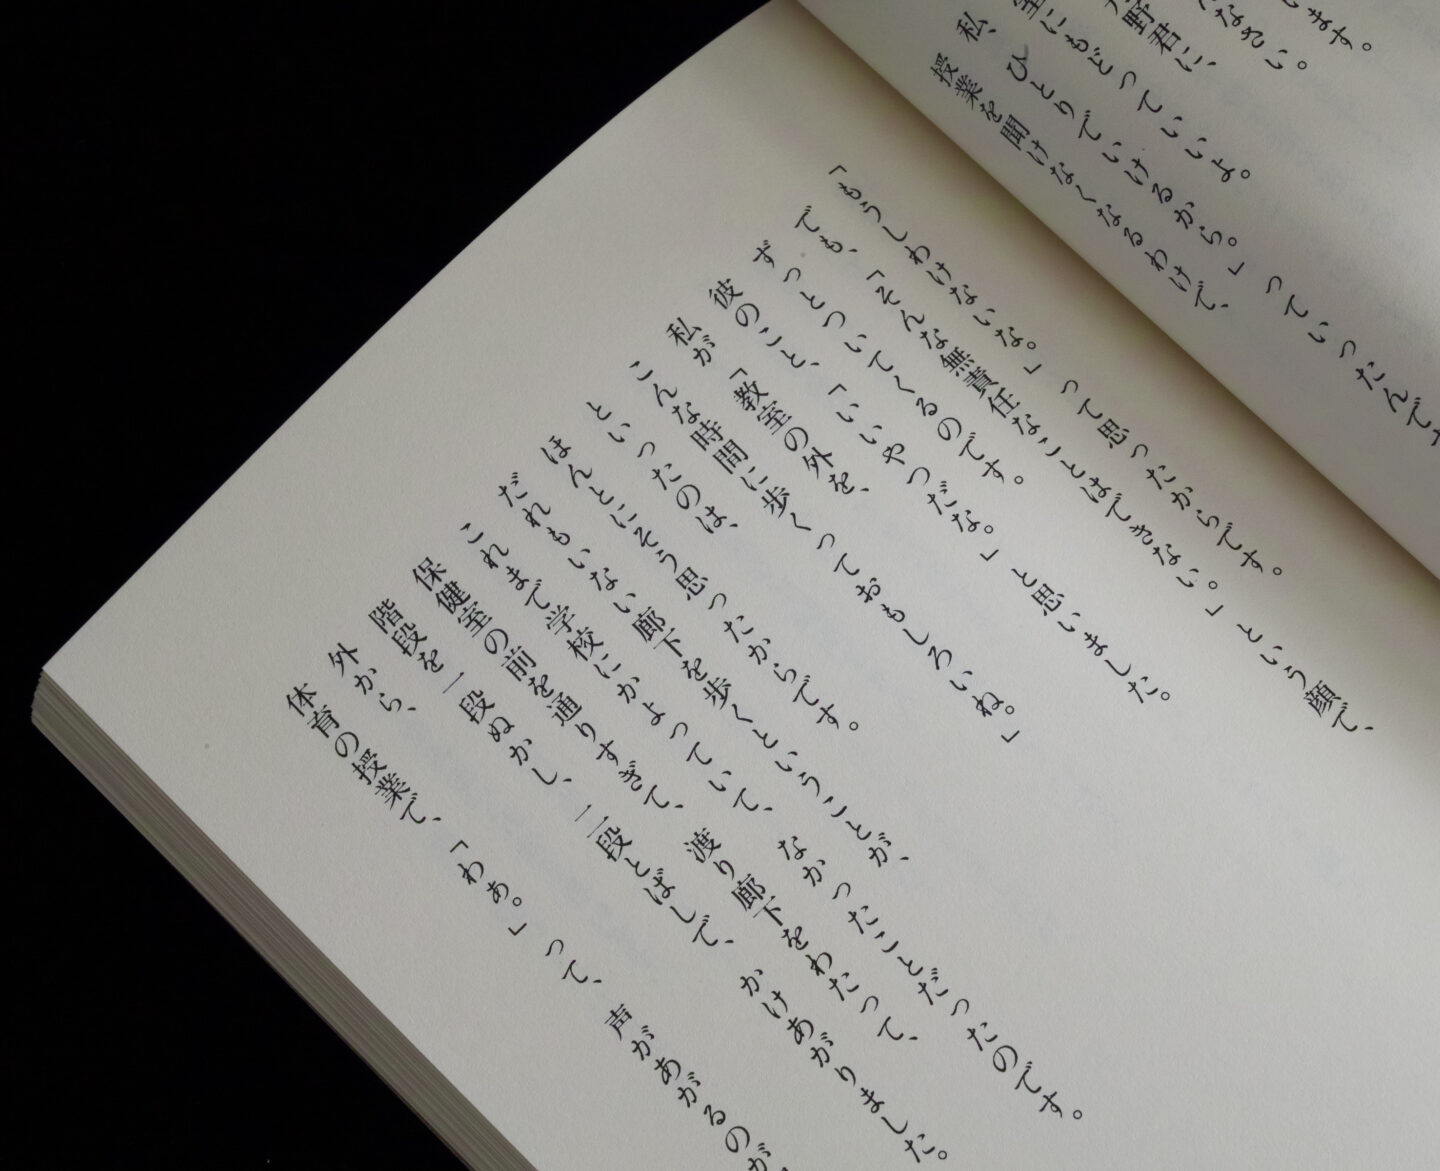 います。
なさい。
野君に、
室にもどっていいよ。
私、ひとりでいけるから。」っていったんで
授業を聞けなくなるわけで、
「もうしわけないな。」って思ったからです。
でも、「そんな無責任なことはできない。」という顔で、
ずっとついてくるのです。
彼のこと、「いいやつだな。」と思いました。
私が「教室の外を、
こんな時間に歩くっておもしろいね。」
といったのは、
ほんとにそう思ったからです。
だれもいない廊下を歩くということが、
これまで学校にかよっていて、なかったことだったのです。
保健室の前を通りすぎて、渡り廊下をわたって、
階段を一段ぬかし、二段とばしで、かけあがりました。
外から、
体育の授業で、「わあ。」って、声があがるのが